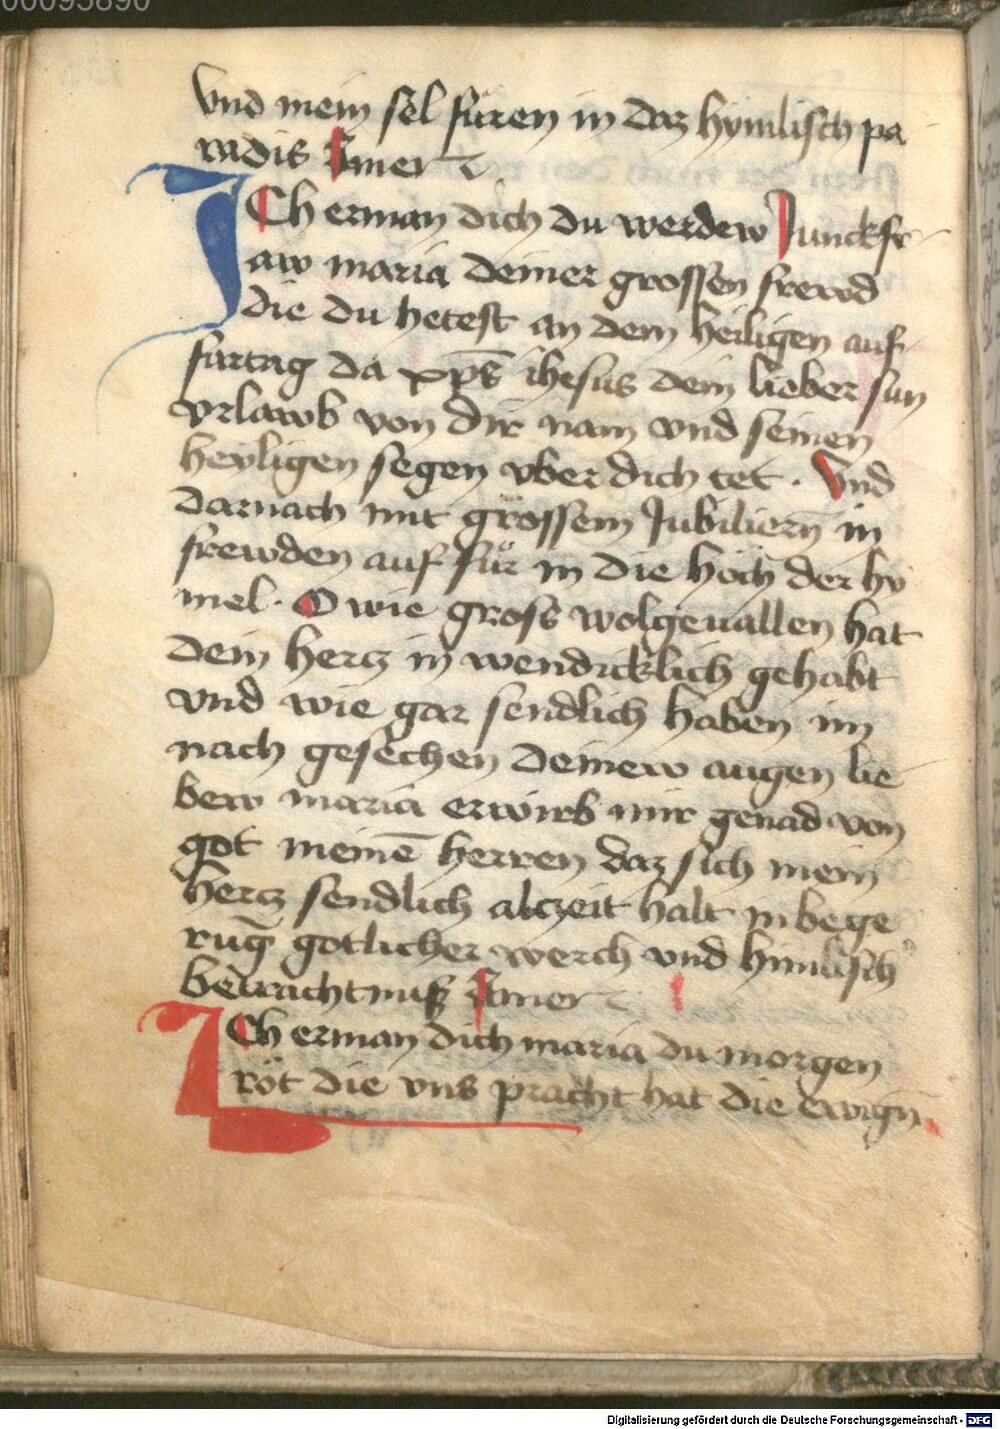 00095890
Vnd mein sel füren in daz hymlisch pa
radis Amen
ICh erman dich du werdew Junckfr
aw maria deiner grossen frewd
die du hetest an dem heiligen auf
fartag da xp̄s ihesus dein lieber sun
vrlawb von dir nam vnd seinen
heyligen segen vber dich tet . Vnd
darnach mit grossem Jubiliern̄ in
frewden auf für in die höch der hy
mel . O wie gross wolgeuallen hat
dein hercz in wendicklich gehabt
vnd wie gar sendlich haben im
nach gesechen deinew augen lie
bew maria erwirb mir genad von
got meinē herren daz sich mein
hercz sendlich alczeit halt in bege
rūg gotlicher werch vnd himlisch
betrachtnuß Amen
ICh erman dich maria du morgen
röt die vns pracht hat die ewign̄
Digitalisierung gefördert durch die Deutsche Forschungsgemeinschaft - DFG